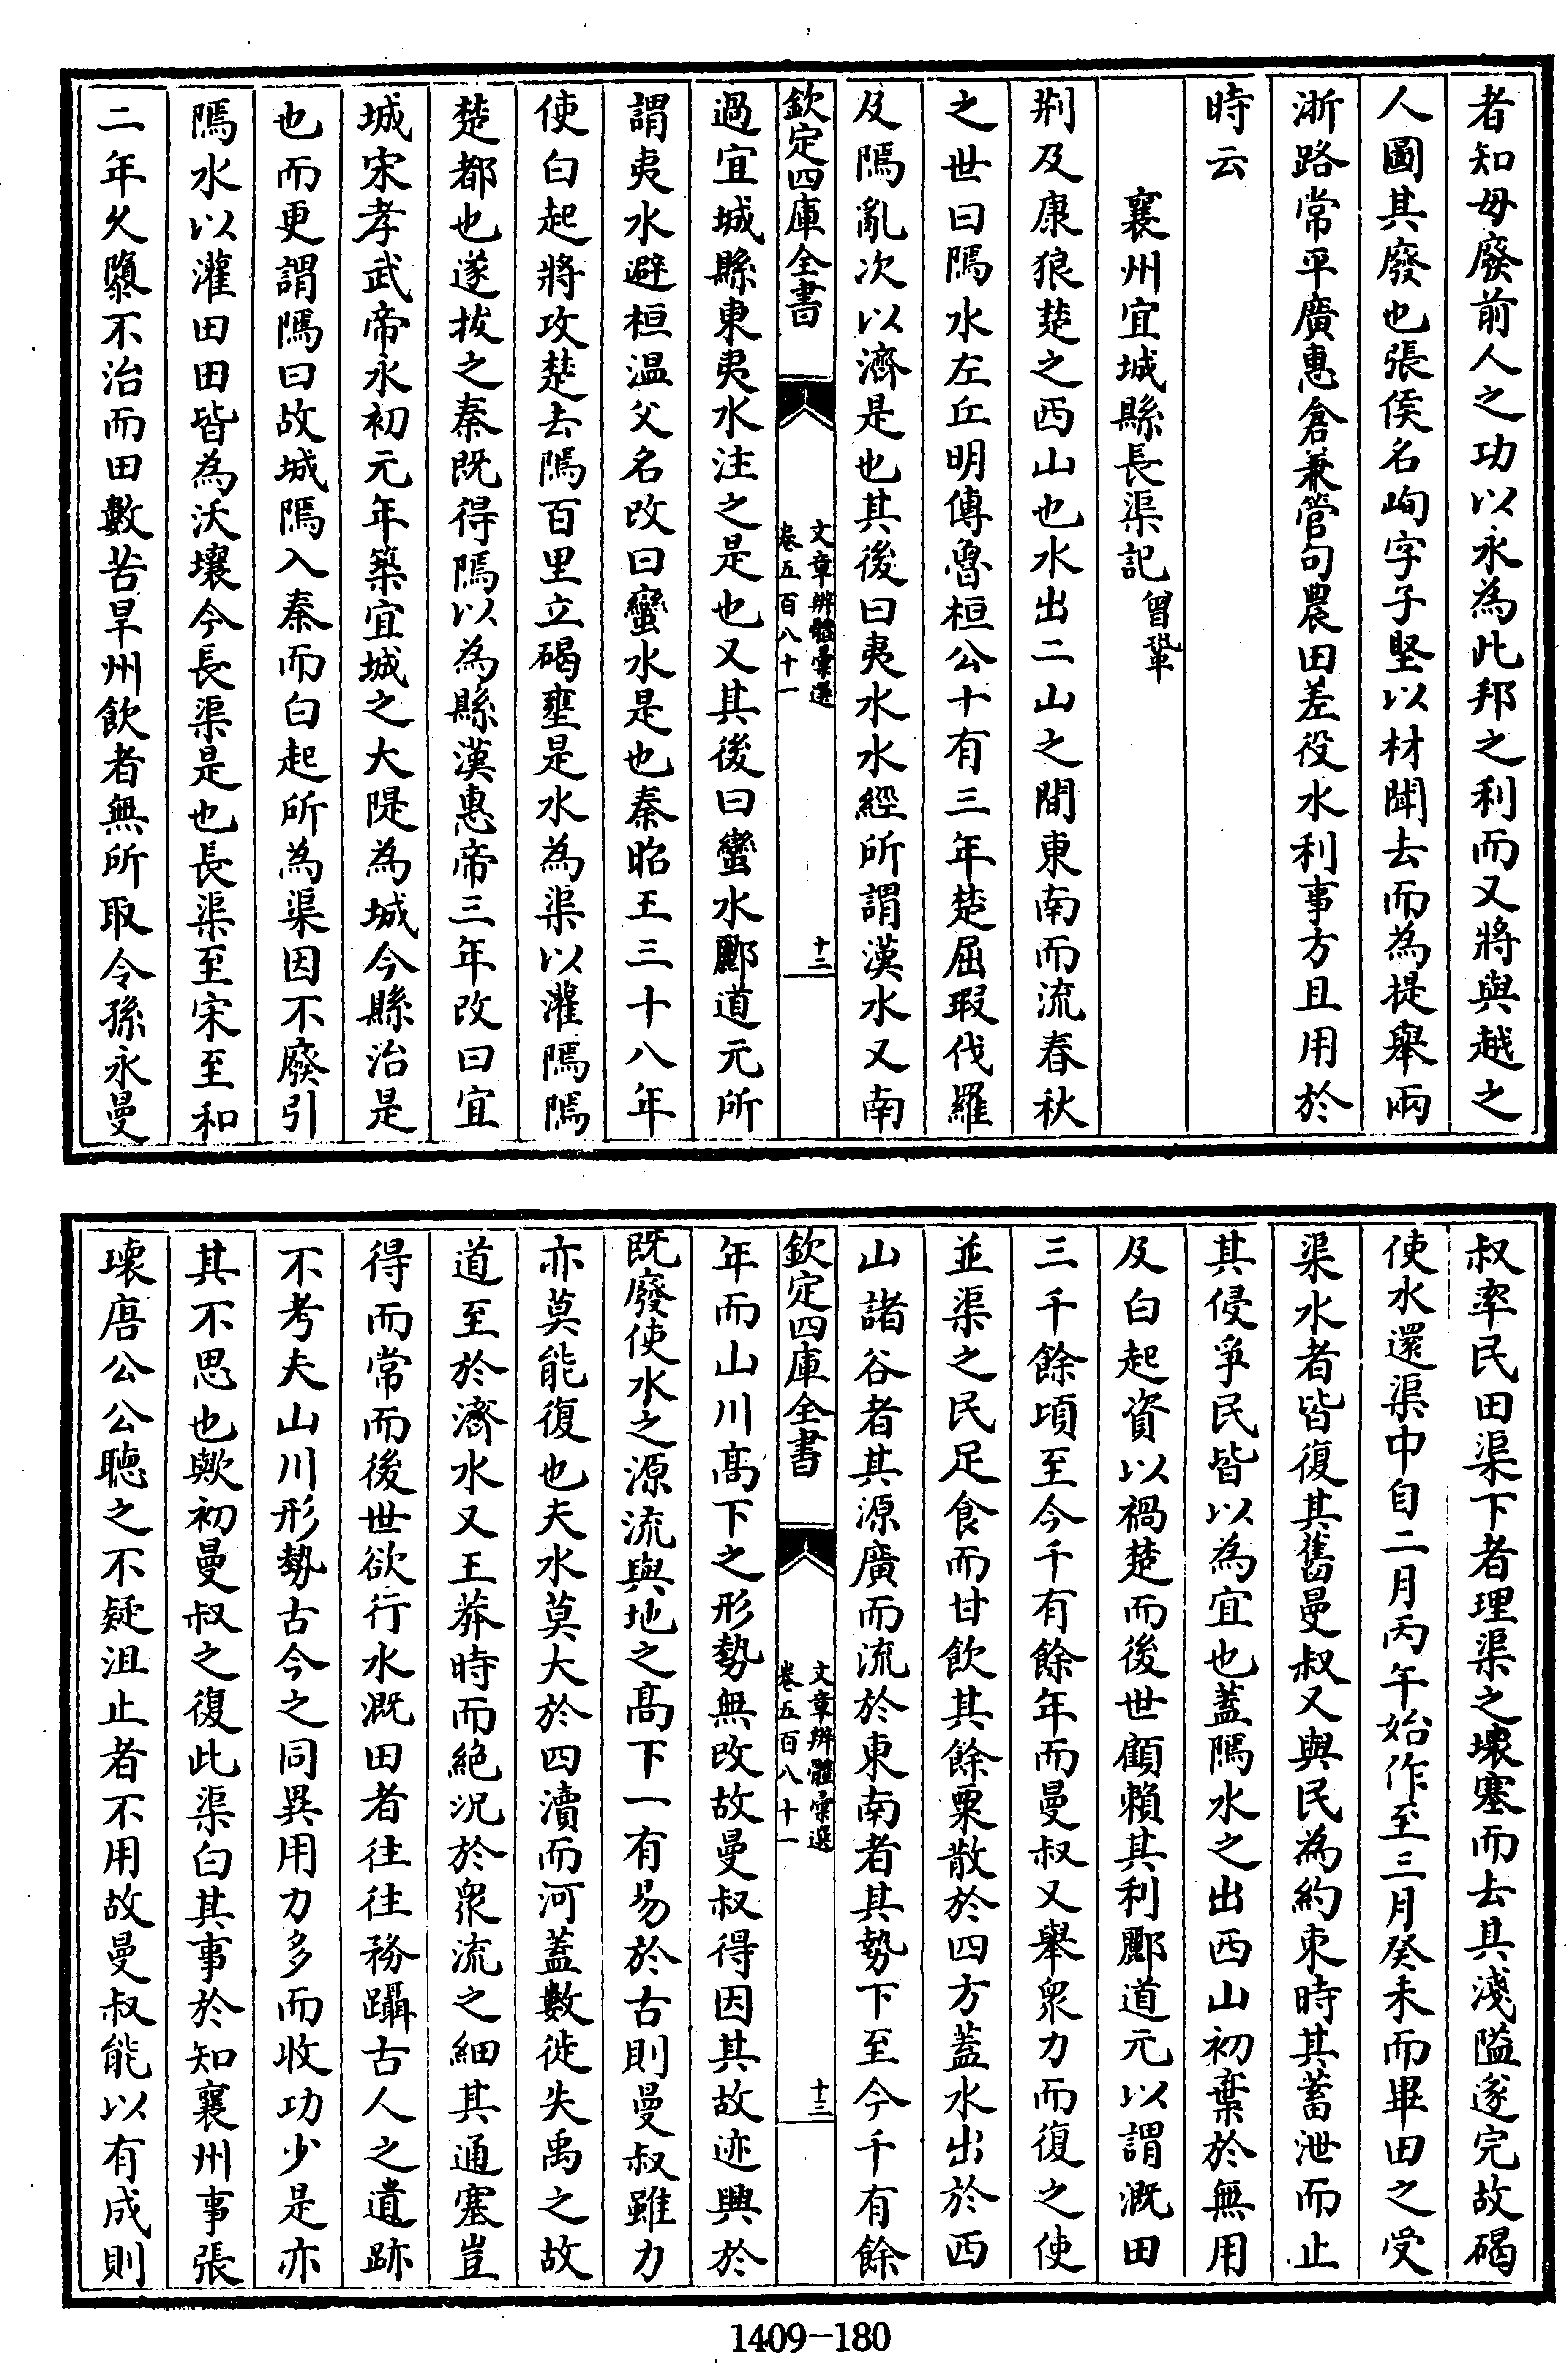 者知毋廢前人之功以永為此邦之利而又將與越之
人圖其廢也張侯名峋字子堅以材聞去而為提舉兩
浙路常平廣惠倉兼管句農田差役水利事方且用於
時云
襄州宜城縣長渠記曾鞏
荆及康狼楚之西山也水出二山之間東南而流春秋
之世曰隝水左丘明傳魯桓公十有三年楚屈瑕伐羅
及隝亂次以濟是也其後曰夷水水經所謂漢水又南
欽定四庫全書
文章辨體彙選
卷五百八十一
十二
過宜城縣東夷水注之是也又其後曰蠻水酈道元所
謂夷水避桓温父名改曰蠻水是也秦昭王三十八年
使白起將攻楚去隝百里立碣壅是水為渠以灌隝隝
楚都也遂拔之秦既得隝以為縣漢惠帝三年改曰宜
城宋孝武帝永初元年築宜城之大隄為城今縣治是
也而更謂隝曰故城隝入秦而白起所為渠因不廢引
隝水以灌田田皆為沃壤今長渠是也長渠至宋至和
二年久隳不治而田數苦旱州飲者無所取令孫永曼
叔率民田渠下者理渠之壊塞而去其淺隘遂完故碣
使水還渠中自二月丙午始作至三月癸未而畢田之受
渠水者皆復其舊曼叔又與民為約束時其蓄泄而止
其侵爭民皆以為宜也蓋隝水之出西山初棄於無用
及白起資以禍楚而後世顧賴其利酈道元以謂溉田
三千餘頃至今千有餘年而曼叔又舉衆力而復之使
並渠之民足食而甘飲其餘粟散於四方蓋水出於西
山諸谷者其源廣而流於東南者其勢下至今千有餘
欽定四庫全書
文章辨體彙選
卷五百八十一
十三
年而山川髙下之形勢無改故曼叔得因其故迹興於
既廢使水之源流與地之髙下一有易於古則曼叔雖力
亦莫能復也夫水莫大於四瀆而河蓋數徙失禹之故
道至於濟水又王莽時而絶況於衆流之細其通塞豈
得而常而後世欲行水溉田者往往務躡古人之遺跡
不考夫山川形勢古今之同異用力多而收功少是亦
其不思也歟初曼叔之復此渠白其事於知襄州事張
壊唐公公聽之不疑沮止者不用故曼叔能以有成則
1409-180